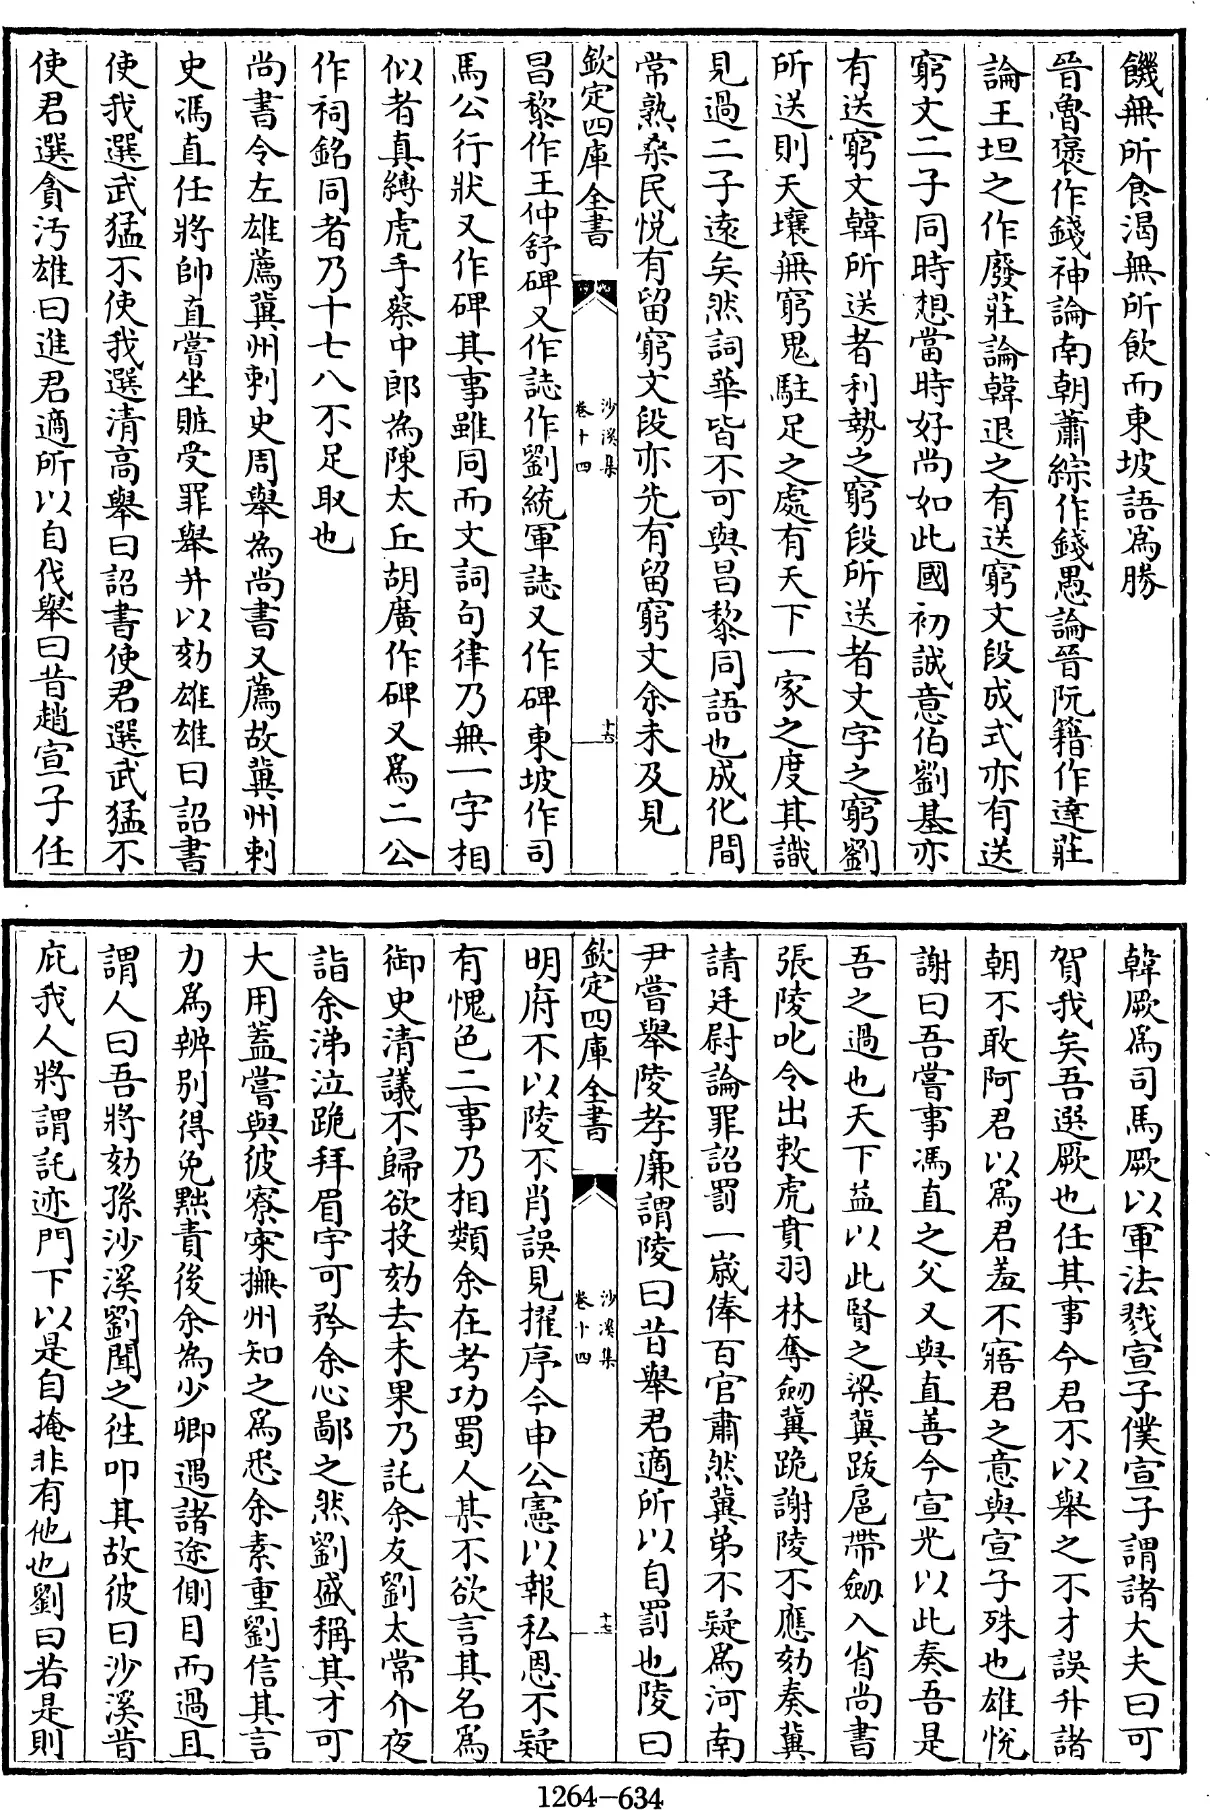 饑無所食渴無所飲而東坡語爲勝
晉魯褒作錢神論南朝蕭綜作錢愚論晉阮籍作達莊
論王坦之作廢莊論韓退之有送窮文段成式亦有送
窮文二子同時想當時好尚如此國初誠意伯劉基亦
有送窮文韓所送者利勢之窮段所送者文字之窮劉
所送則天壤無窮鬼駐足之處有天下一家之度其識
見過二子遠矣然詞華皆不可與昌黎同語也成化間
常熟桑民悅有留窮文段亦先有留窮文余未及見
欽定四庫全書
沙溪集
卷十四
十六
昌黎作王仲舒碑又作誌作劉統軍誌又作碑東坡作司
馬公行狀又作碑其事雖同而文詞句律乃無一字相
似者真縛虎手蔡中郎為陳太丘胡廣作碑又爲二公
作祠銘同者乃十七八不足取也
尚書令左雄薦冀州刺史周舉為尚書又薦故冀州刺
史馮直任將帥直嘗坐贓受罪舉并以劾雄雄曰詔書
使我選武猛不使我選清高舉曰詔書使君選武猛不
使君選貪汚雄曰進君適所以自伐舉曰昔趙宣子任
韓厥爲司馬厥以軍法戮宣子僕宣子謂諸大夫曰可
賀我矣吾選厥也任其事今君不以舉之不才誤升諸
朝不敢阿君以爲君羞不寤君之意與宣子殊也雄悅
謝曰吾嘗事馮直之父又與直善今宣光以此奏吾是
吾之過也天下益以此賢之梁冀跋扈帶劒入省尚書
張陵叱令出敕虎賁羽林奪劒冀跪謝陵不應劾奏冀
請廷尉論罪詔罰一歲俸百官肅然冀弟不疑爲河南
尹嘗舉陵孝廉謂陵曰昔舉君適所以自罰也陵曰
欽定四庫全書
沙溪集
卷十四
十七
明府不以陵不肖誤見擢序今申公憲以報私恩不疑
有愧色二事乃相類余在考功蜀人某不欲言其名爲
御史清議不歸欲投劾去未果乃託余友劉太常介夜
詣余涕泣跪拜眉宇可矜余心鄙之然劉盛稱其才可
大用蓋嘗與彼寮寀撫州知之爲悉余素重劉信其言
力爲辨別得免黜責後余為少卿遇諸途側目而過且
謂人曰吾將劾孫沙溪劉聞之往叩其故彼曰沙溪昔
庇我人將謂託迹門下以是自掩非有他也劉曰若是則
1264-634